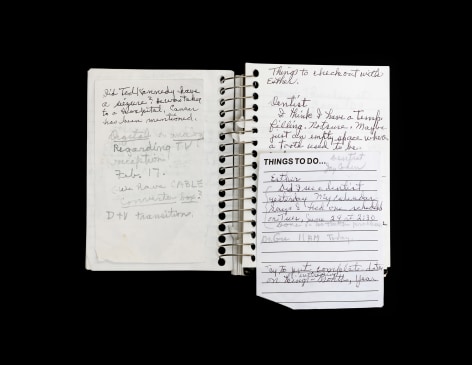 Did Ted Kennedy have
a seizure? He was taken
to a Hospital. Cancer
has been mentioned.
Digital
Regarding TV
reception.
Feb. 17.
we have CABLE
converter box?
DTV transition.
Things to check out with
Esther.
Dentist
I think I have a Temp
filling. Not sure. Maybe
just an empty space where
a Tooth used to be.
THINGS TO DO...
Esther
Did I see a dentist
yesterday. My calendar
shows I had one scheduled
on Tues, June 24 at 2:30
Before 11 AM Today
Try to put complete date
on things - Month, Year